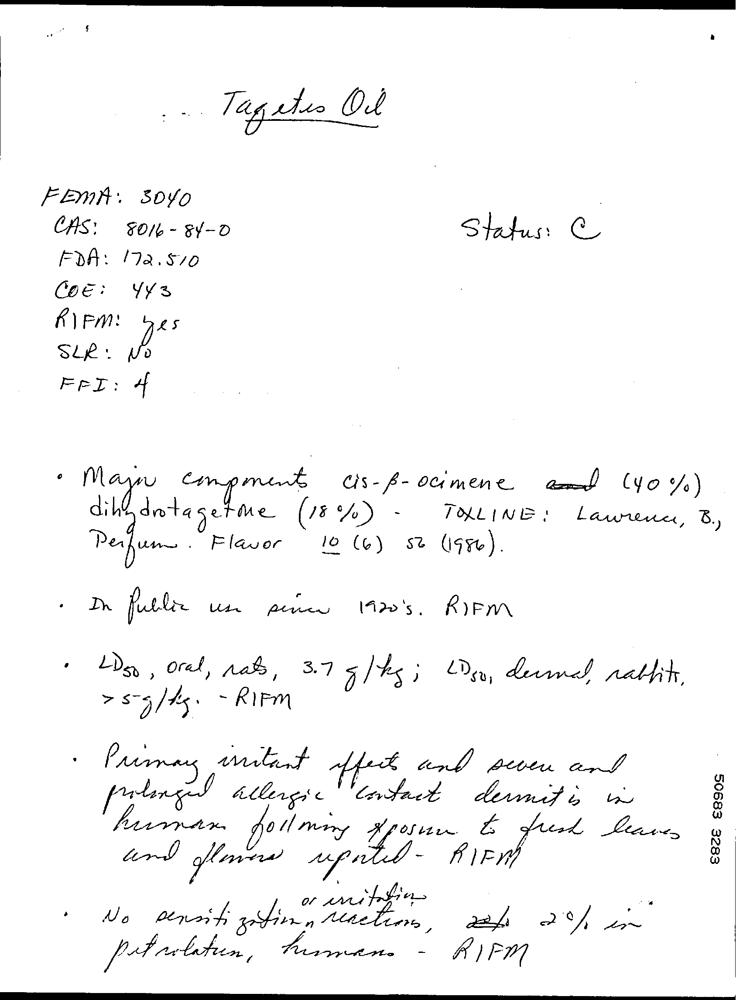 Tagetes Oil
FEMA: 3040
CAS: 8016-84-0
Status: C
FDA: 172.510
COE: 443
RIFM: yes
SLR: No
FFI: 4
• Major components cis-β-ocimene and (40%)
dihydrotagetone (18%) - TOXLINE: Lawrence, B.,
Perfum. Flavor 10 (6) 52 (1986).
• In public use since 1920's. RIFM
• LD50, oral, rats, 3.7 g/kg; LD50, dermal, rabbits,
>5-g/kg. - RIFM
• Primary irritant effects and severe and
prolonged allergic contact dermitis in
humans following exposure to fresh leaves
and flowers reported - RIFM
or irritation
• No sensitization reactions, 2% in
petrolatum, humans - RIFM
50683 3283